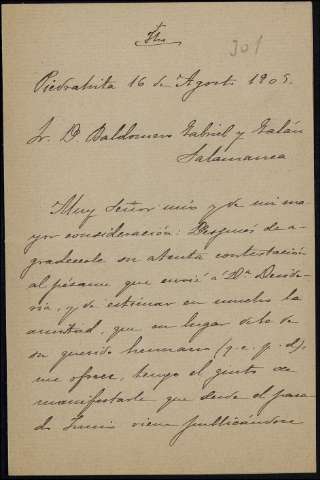 301
Piedrahita 16 de Agosto 1905.
Sr. D. Baldomero Gabriel y Galán
Salamanca
Muy Señor mío y de mi ma-
yor consideración: Después de a-
gradecerle su atenta contestación
al pésame que envié á Dª Deside-
ria, y de estimar en mucho la
amistad, que en lugar de la de
su querido hermano (q. e. p. d.),
me ofrece, tengo el gusto de
manifestarle que desde el pasa-
do Junio viene publicándose